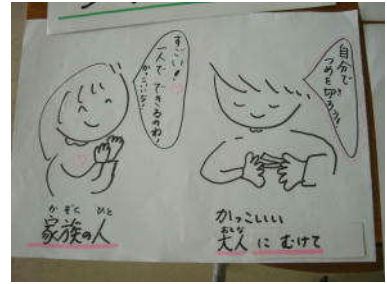 すごい！
一人で できるのね！
かっこいいな！
自分で
つめを切ろう！
かぞく めと
家族の人
かっこいい
おとな
大人 に むけて